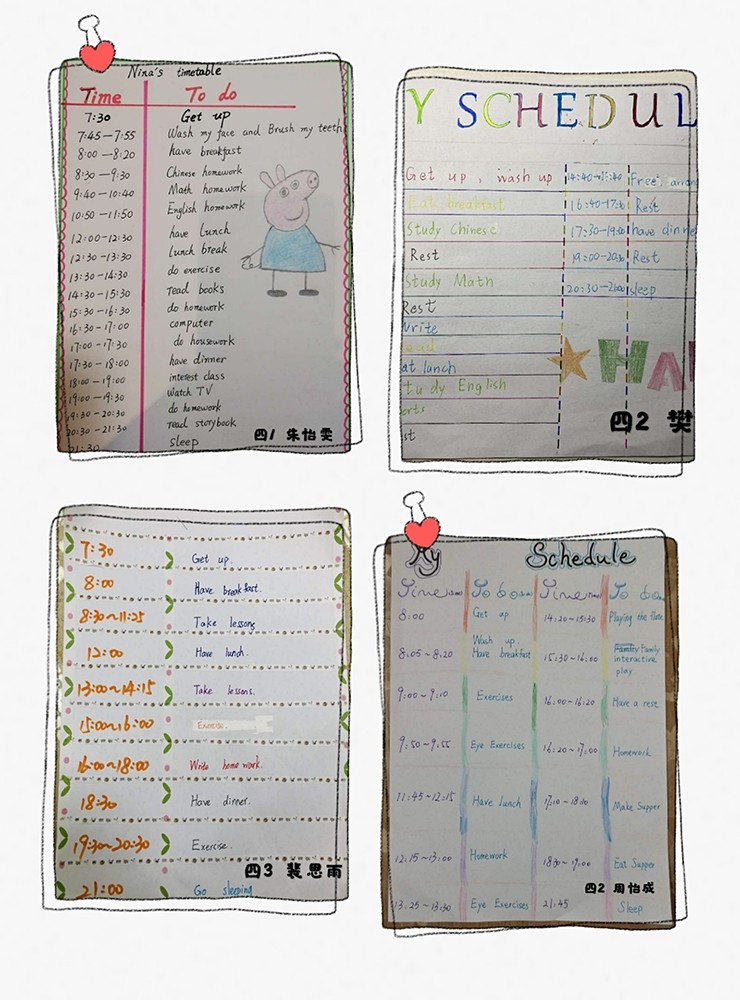 Nina's timetable
Time To do
7:30 Get up
7:45—7:55 Wash my face and Brush my teeth
8:00—8:20 have breakfast
8:30—9:30 Chinese homework
9:40—10:40 Math homework
10:50—11:50 English homework
12:00-12:30 have lunch
12:30-13:30 lunch break
13:30-14:30 do exercise
14:30-15:30 read books
15:30-16:30 do homework
16:30-17:00 computer
17:00-17:30 do housework
17:30-18:00 have dinner
18:00-19:00 interest class
19:00-19:30 Watch TV
19:30-20:30 do homework
20:30-21:30 read storybook
21:30 sleep
四1 朱怡雯
Y SCHEDUL
Get up, wash up 14:40-15:40 Free
Eat breakfast 16:40-17:20 Rest
Study Chinese 17:30-19:00 have dinne
Rest 19:00-20:30 Rest
Study Math 20:30-21:00 sleep
Rest
Write
ead
at lunch
tudy English
orts
st
HA
四2 樊
7:30 Get up.
8:00 Have breakfast.
8:30~11:25 Take lessons
12:00 Have lunch.
13:00~14:15 Take lessons.
15:00~16:00
16:00~18:00 Write home work.
18:30 Have dinner.
19:30~20:30 Exercise.
21:00 Go sleeping
四3 裴思雨
My Schedule
Time To do Time To do
8:00 Get up 14:20~15:30 Playing the flute
8:05~8:20 Wash up. Have breakfast 15:30-16:00 Family interactive play
9:00~9:10 Exercises 16:00-16:20 Have a rest
9:50~9:55 Eye Exercises 16:20~17:00 Homework
11:45-12:15 Have lunch 17:10-18:10 Make Supper
12:15~13:00 Homework 18:30~19:00 Eat Supper
13:25~13:30 Eye Exercises 21:45 Sleep
四2 周怡成